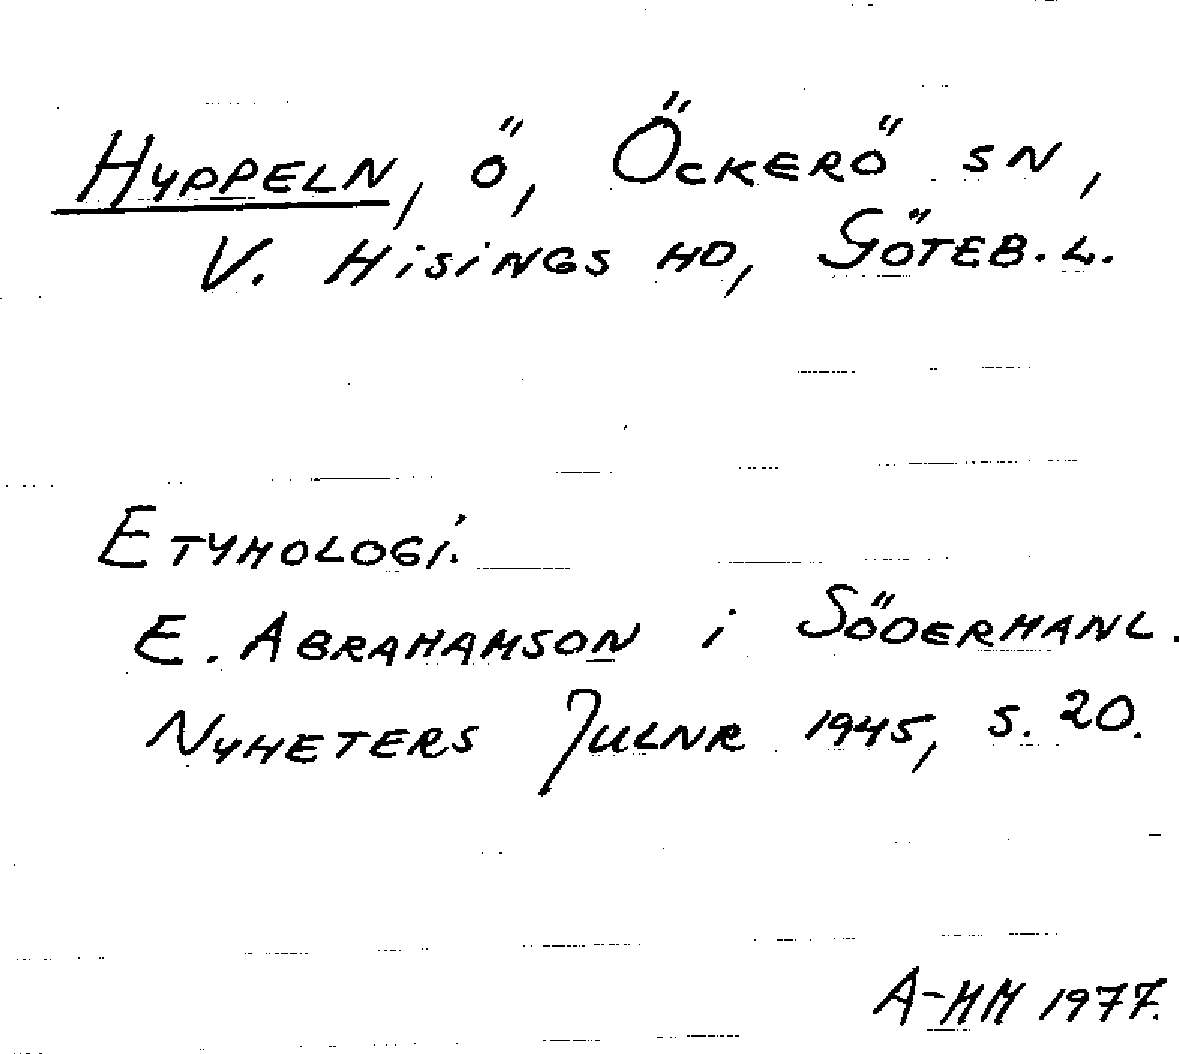 HYPPELN, Ö, ÖCKERÖ SN,
V. HISINGS HD, GÖTEB. L.
ETYMOLOGI.
E. ABRAHAMSON i SÖDERMANL.
NYHETERS JULNR 1945, S. 20.
A-MM 1977.